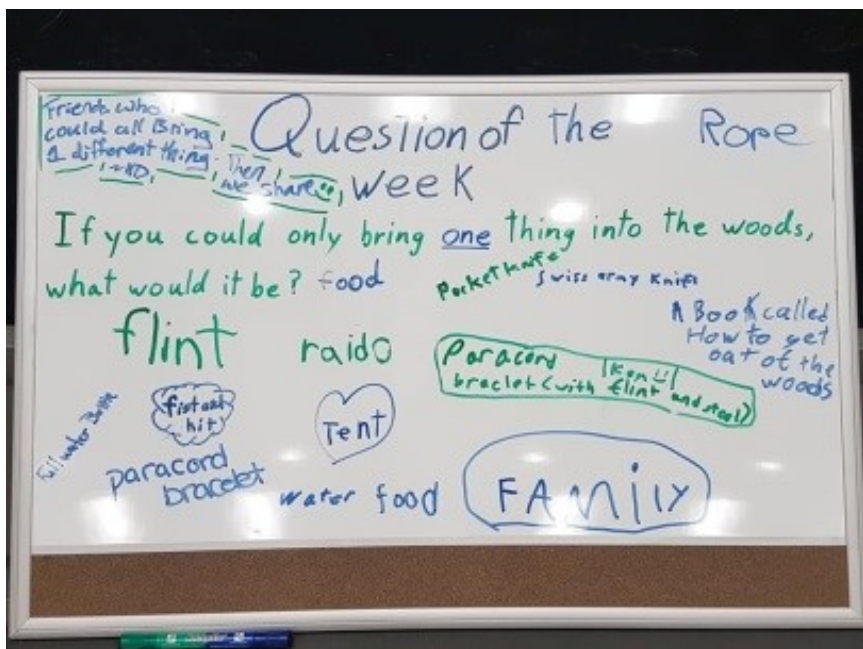 Friends who
could all Bring
1 different thing. Then
we share
Question of the
week
Rope
If you could only bring one thing into the woods,
what would it be? food
Pocket knife
Swiss army knife
A Book called
How to get
oat of the
woods
flint
raido
Paracord
braclet (with flint and steel)
Ken
fist aid
kit
Tent
Full water Bottle
paracord
bracelet
water food
FAmily